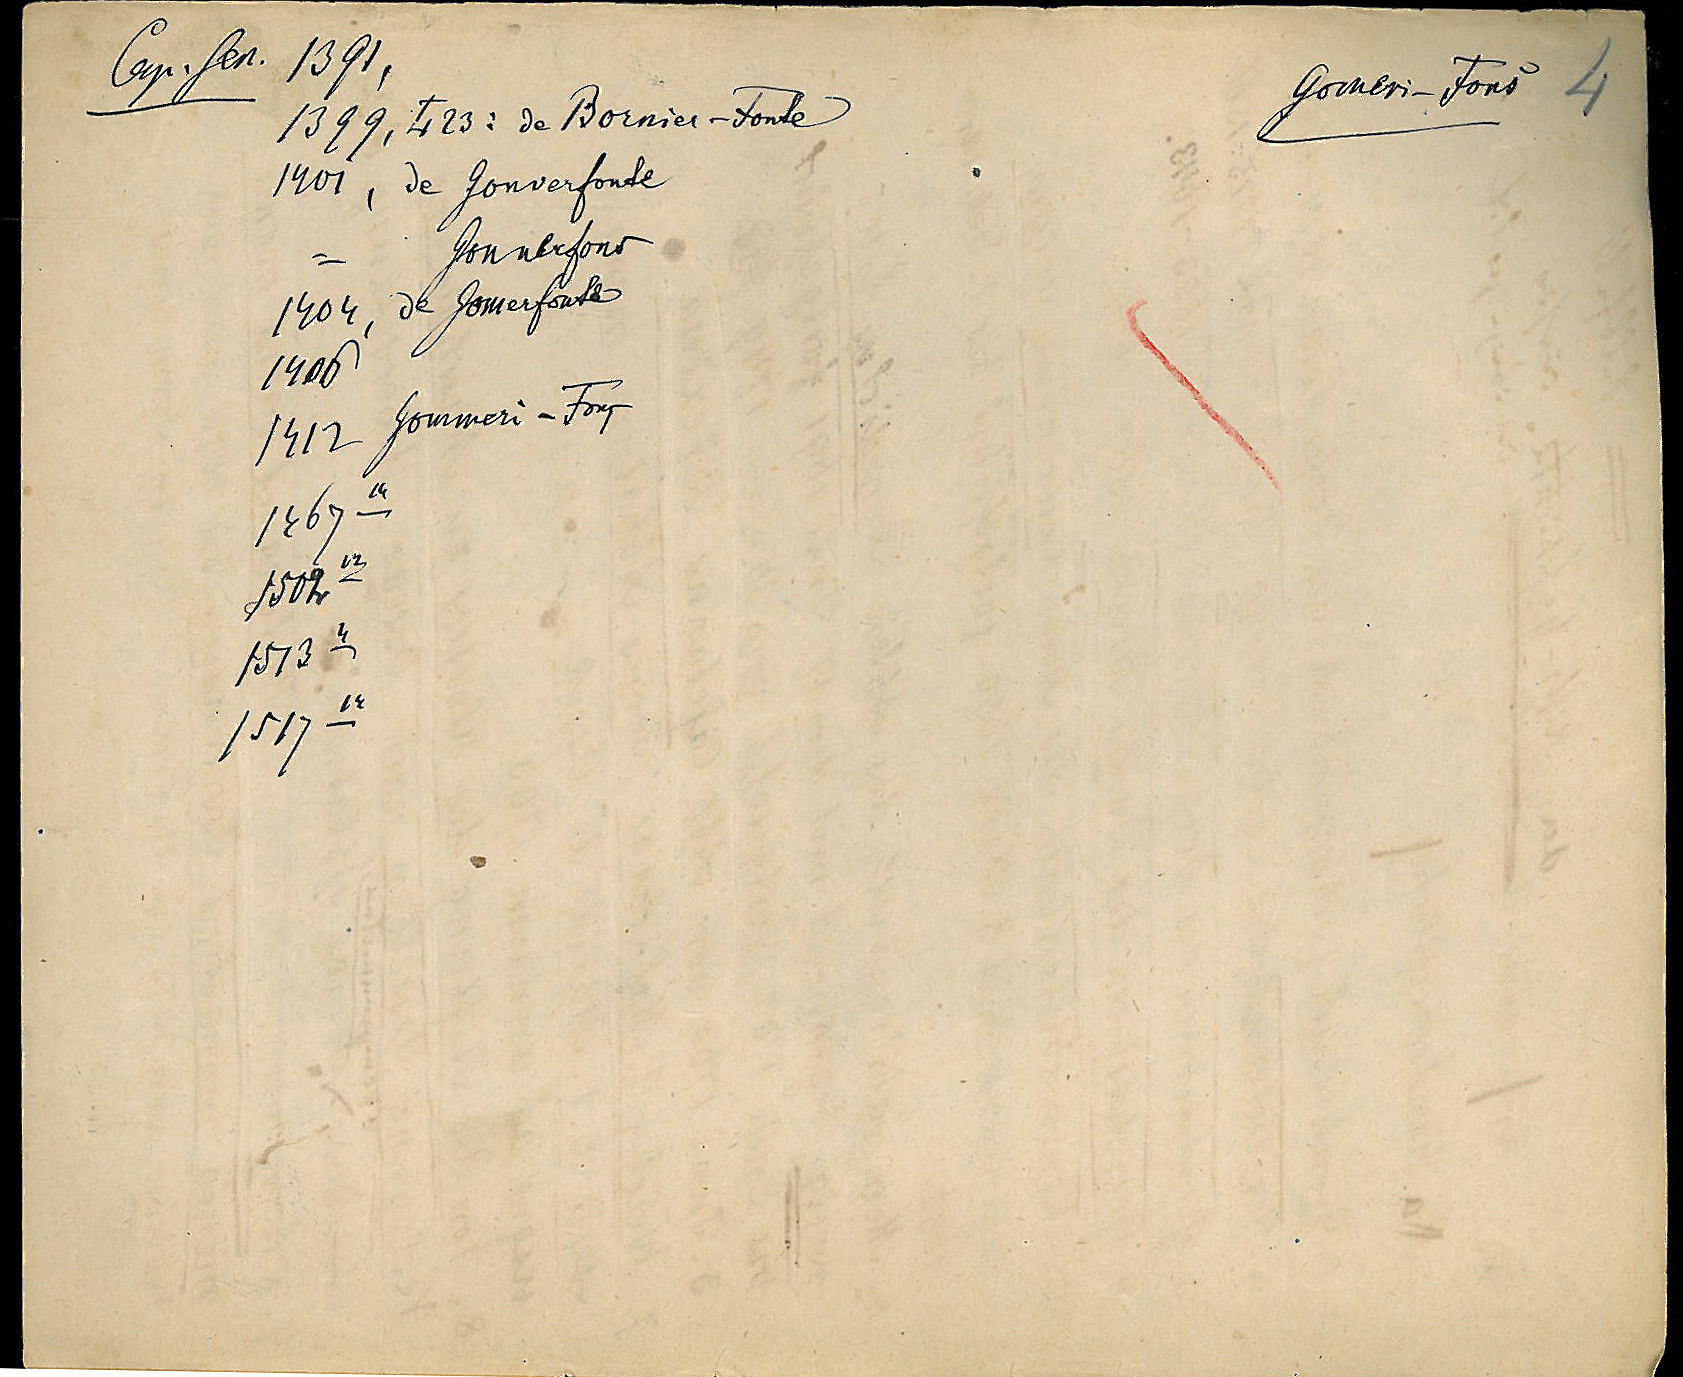 Gomeri-Fons 4
Cap. Gen. 1391,
1399, 423: de Bornier-Fonte
1401, de Gonverfonte
= Gonnerfons
1404, de Gomerfonte
1406
1412 Gommeri-Fons
1467 14
1502 12
1513 4
1517 14